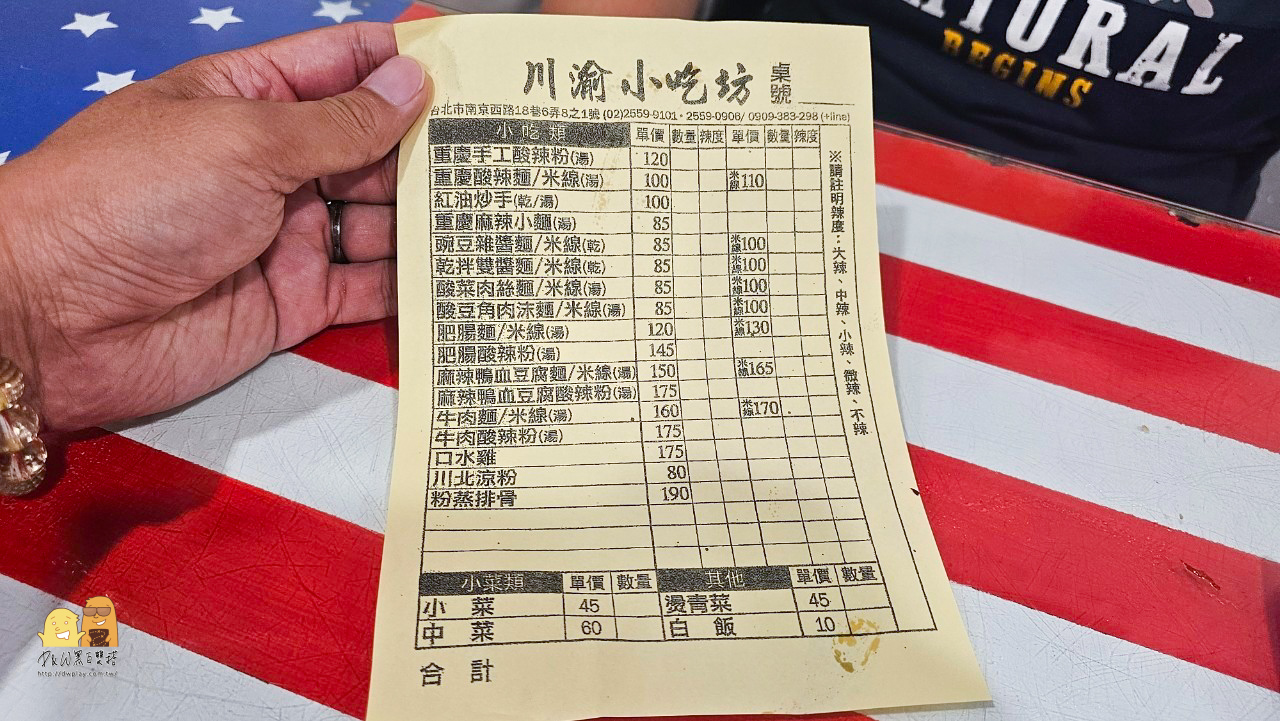 NATURAL
BEGINS
川渝小吃坊 桌號
台北市南京西路18巷6弄8之1號 (02)2559-9101・2559-0906/ 0909-383-298 (+line)
小吃類 單價 數量 辣度 單價 數量 辣度
重慶手工酸辣粉(湯) 120
重慶酸辣麵/米線(湯) 100 米線110
紅油炒手(乾/湯) 100
重慶麻辣小麵(湯) 85
豌豆雜醬麵/米線(乾) 85 米線100
乾拌雙醬麵/米線(乾) 85 米線100
酸菜肉絲麵/米線(湯) 85 米線100
酸豆角肉沫麵/米線(湯) 85 米線100
肥腸麵/米線(湯) 120 米線130
肥腸酸辣粉(湯) 145
麻辣鴨血豆腐麵/米線(湯) 150 米線165
麻辣鴨血豆腐酸辣粉(湯) 175
牛肉麵/米線(湯) 160 米線170
牛肉酸辣粉(湯) 175
口水雞 175
川北涼粉 80
粉蒸排骨 190
※請註明辣度：大辣、中辣、小辣、微辣、不辣
小菜類 單價 數量 其他 單價 數量
小菜 45 燙青菜 45
中菜 60 白飯 10
合計
http://dwplay.com.tw/